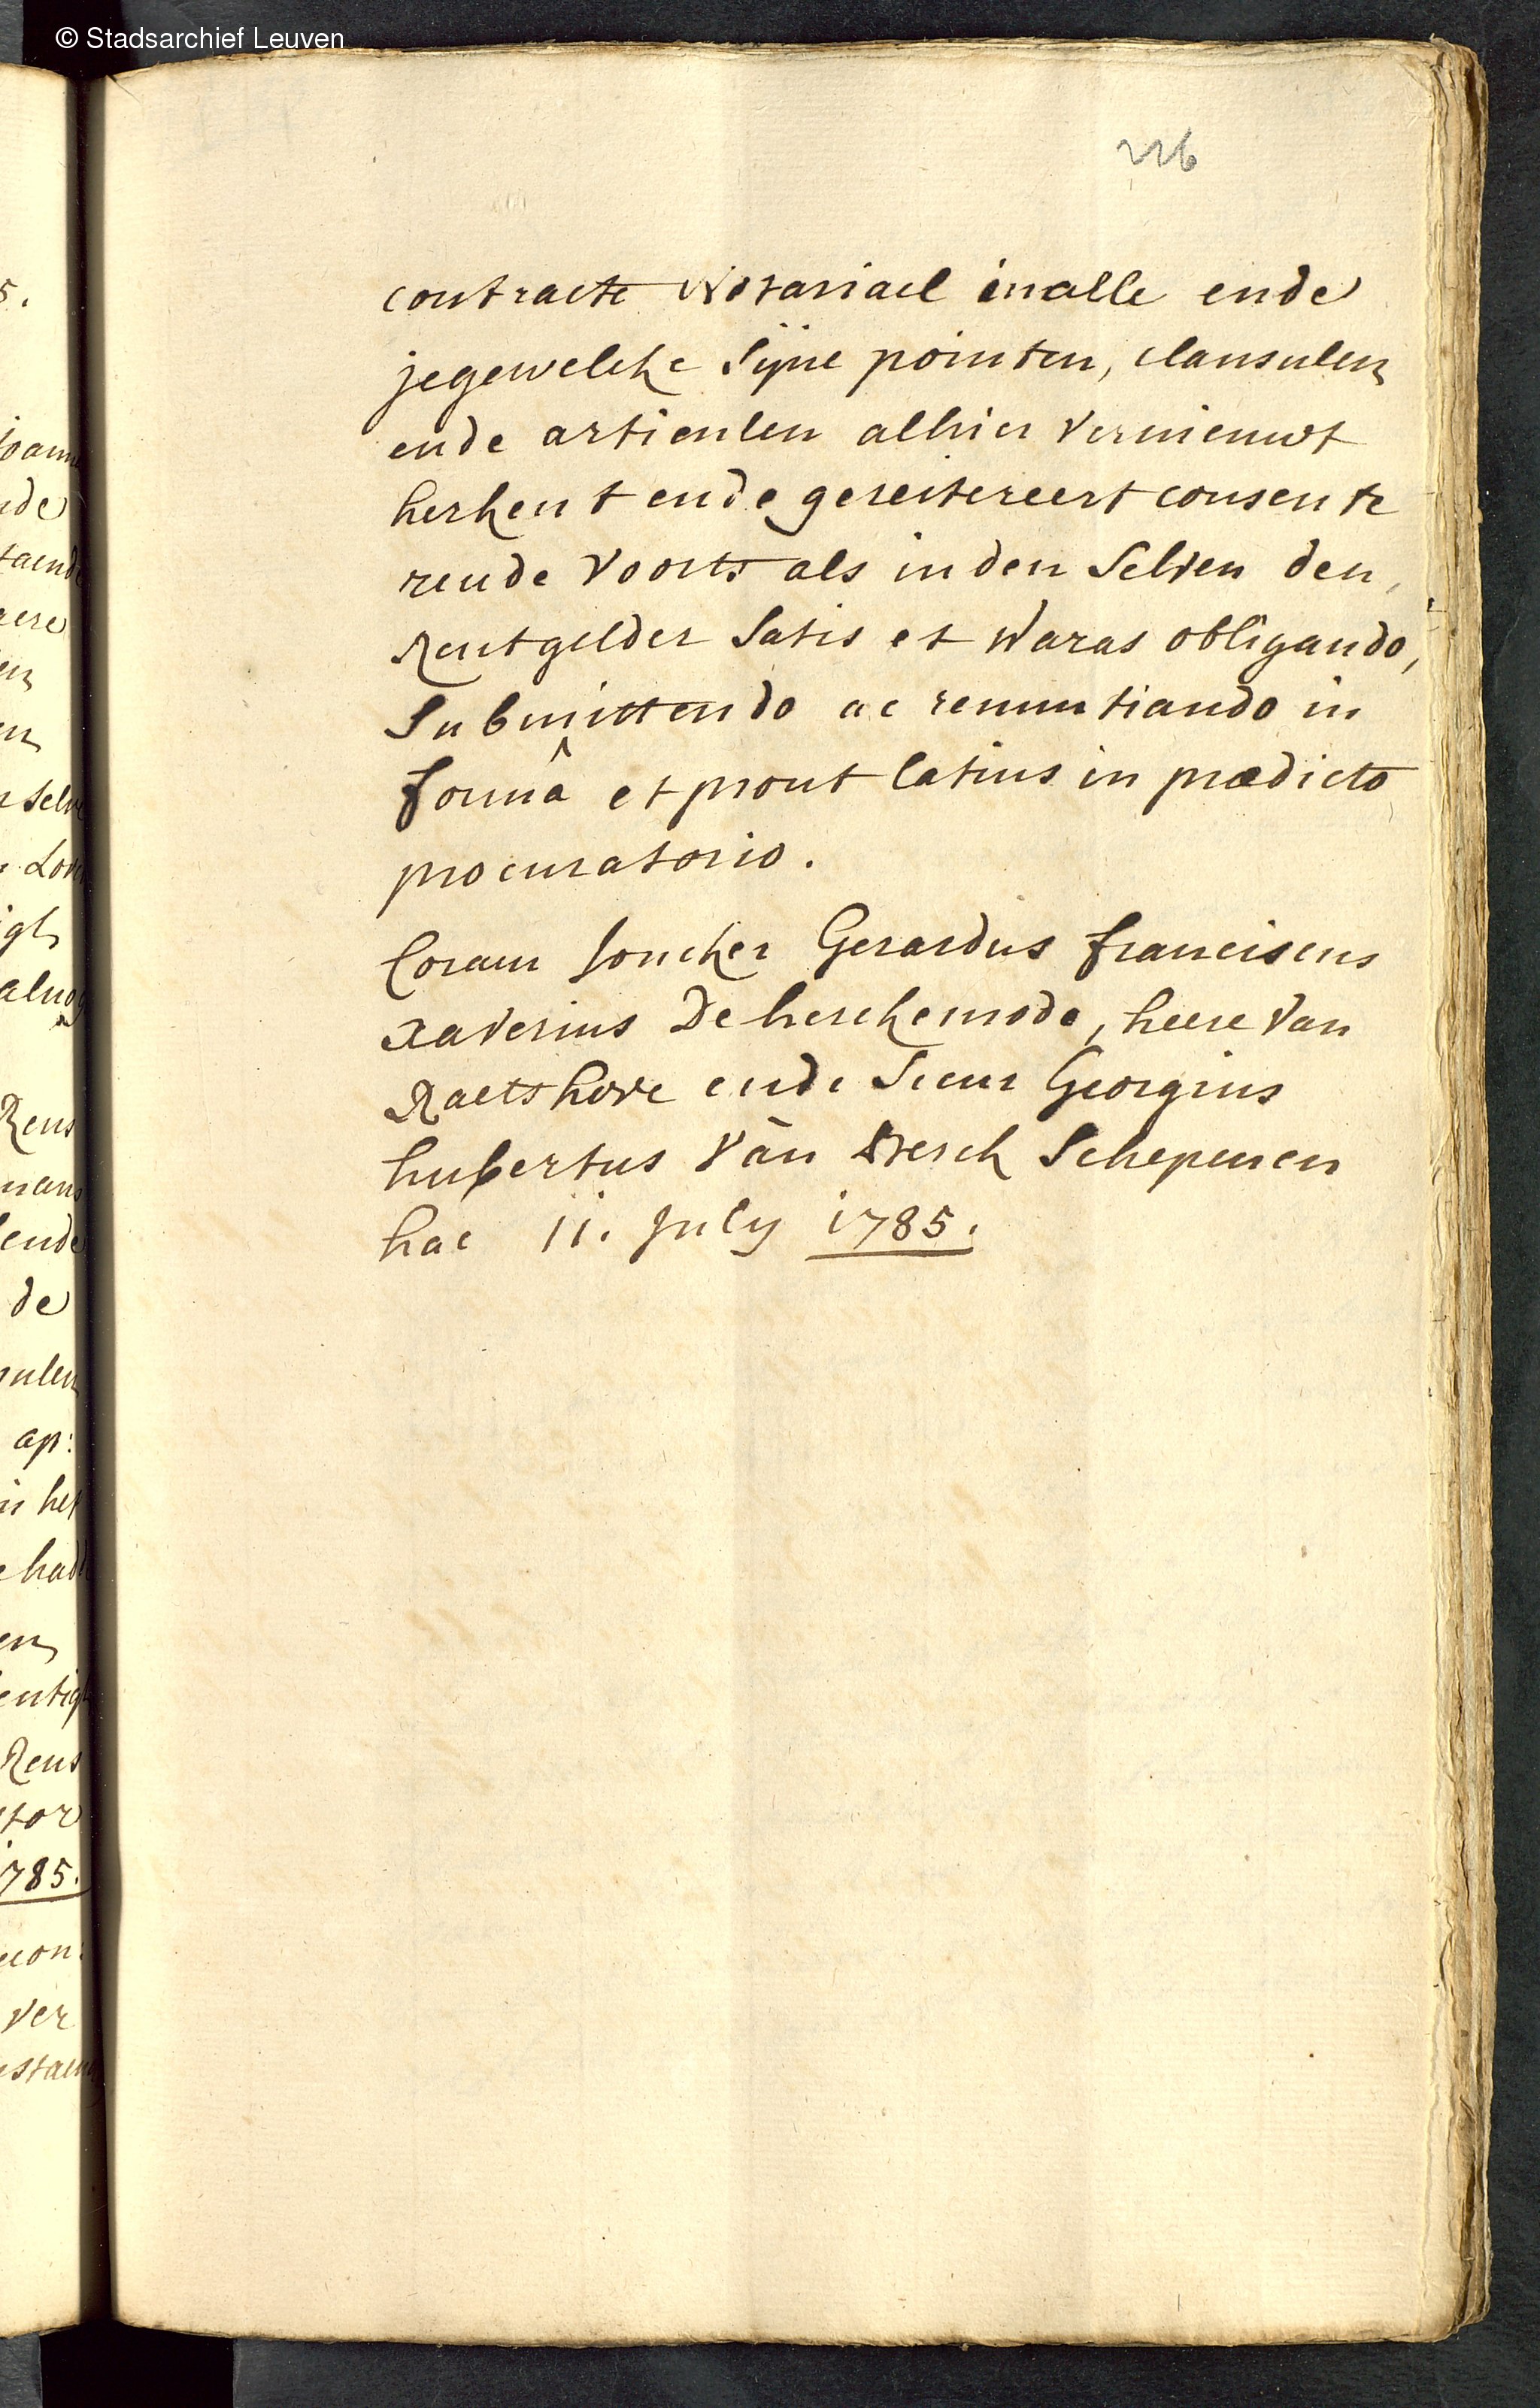 © Stadsarchief Leuven
226
contracte Notariael in alle ende
jegewelcke Sijne pointen, clausulen
ende articulen alhier vernieuwt
herkent ende gereitereert consente
rende voorts als in den Selven den
Rentgelder Satis et Waras obligando,
Submittendo ac renuntiando in
formâ et prout latius in prædicto
procuratorio.
Coram Joncker Gerardus franciscus
Xaverius De herckenrode, heere van
Raetshove ende Sieur Georgius
hubertus Van Schepenen
hac 11. July 1785.
5.
ide
ere
en
igh
Rens
ende
de
ap:
Rens
tor
1785.
ver